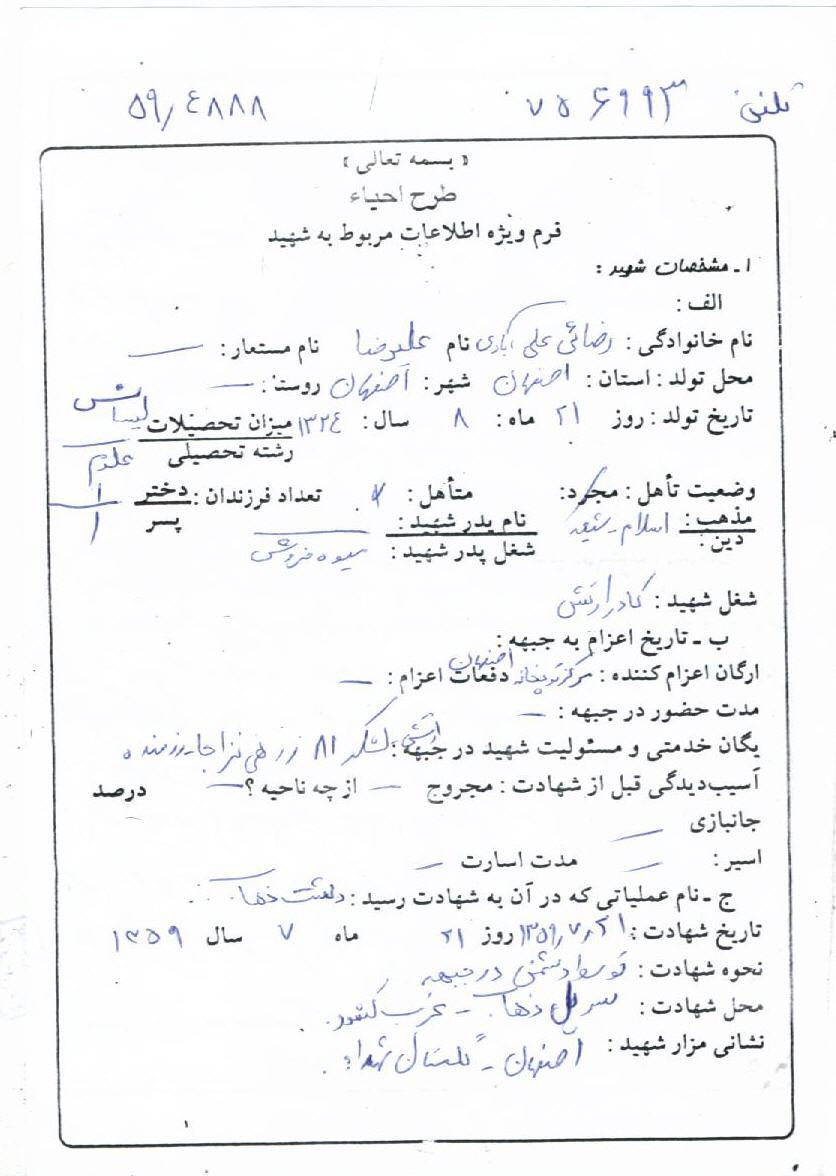 تلفن ۷۵۶۹۹۳ ۵۹٫٤۸۸۸
«بسمه تعالی»
طرح احیاء
فرم ویژه اطلاعات مربوط به شهید
۱ـ مشخصات شهید :
الف :
نام خانوادگی : رضائی علی آبادی نام علیرضا نام مستعار : —
محل تولد : استان : اصفهان شهر : اصفهان روستا : —
تاریخ تولد : روز ۲۱ ماه : ۸ سال : ۱۳۲٤ میزان تحصیلات لیسانس
رشته تحصیلی علوم
وضعیت تأهل : مجرد : متأهل : تعداد فرزندان : دختر ۱
پسر ۱
مذهب : دین : اسلام ـ شیعه نام پدر شهید : —
شغل پدر شهید : میوه فروش
شغل شهید : کادر ارتش
ب ـ تاریخ اعزام به جبهه :
ارگان اعزام کننده : مرکز توپخانه اصفهان دفعات اعزام : —
مدت حضور در جبهه : —
یگان خدمتی و مسئولیت شهید در جبهه : ارتش لشکر ۸۱ زرهی نزاجا ـ رزمنده
آسیب‌دیدگی قبل از شهادت : مجروح — از چه ناحیه ؟ — درصد
جانبازی —
اسیر : — مدت اسارت —
ج ـ نام عملیاتی که در آن به شهادت رسید : دشت ذهاب
تاریخ شهادت : ۱۳۵۹٫۷٫۲۱ روز ۲۱ ماه ۷ سال ۱۳۵۹
نحوه شهادت : توسط دشمن در جبهه
محل شهادت : سرپل ذهاب ـ غرب کشور .
نشانی مزار شهید : اصفهان ـ گلستان شهداء .
۱